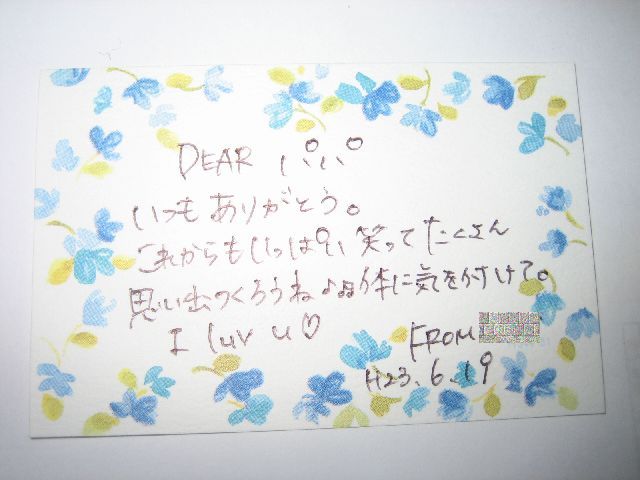 DEAR パパ
いつもありがとう。
これからもいっぱい笑ってたくさん
思い出つくろうね♪♫体に気を付けて。
I luv u♡
FROM
H23.6.19